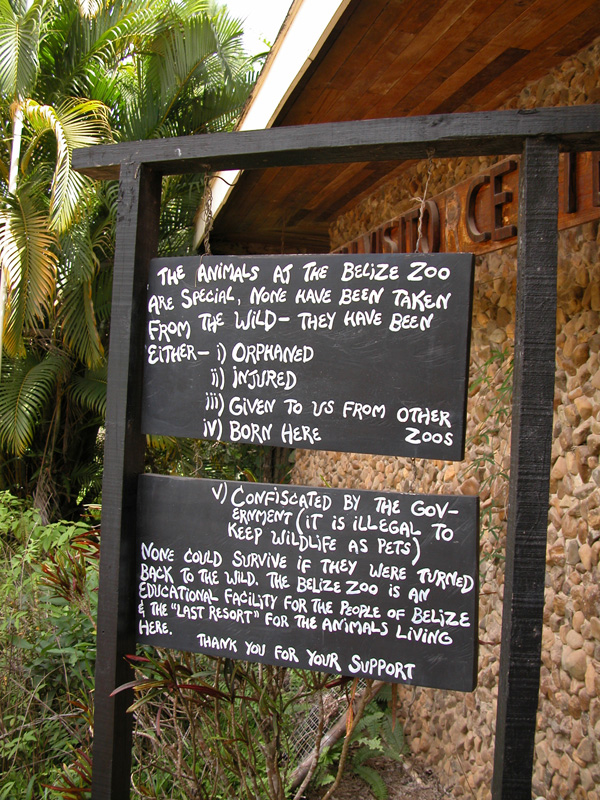 THE ANIMALS AT THE BELIZE ZOO
ARE SPECIAL, NONE HAVE BEEN TAKEN
FROM THE WILD- THEY HAVE BEEN
EITHER- i) ORPHANED
ii) INJURED
iii) GIVEN TO US FROM OTHER
iv) BORN HERE ZOOS
v) CONFISCATED BY THE GOV-
ERNMENT (IT IS ILLEGAL TO
KEEP WILDLIFE AS PETS)
NONE COULD SURVIVE IF THEY WERE TURNED
BACK TO THE WILD. THE BELIZE ZOO IS AN
EDUCATIONAL FACILITY FOR THE PEOPLE OF BELIZE
& THE "LAST RESORT" FOR THE ANIMALS LIVING
HERE. THANK YOU FOR YOUR SUPPORT